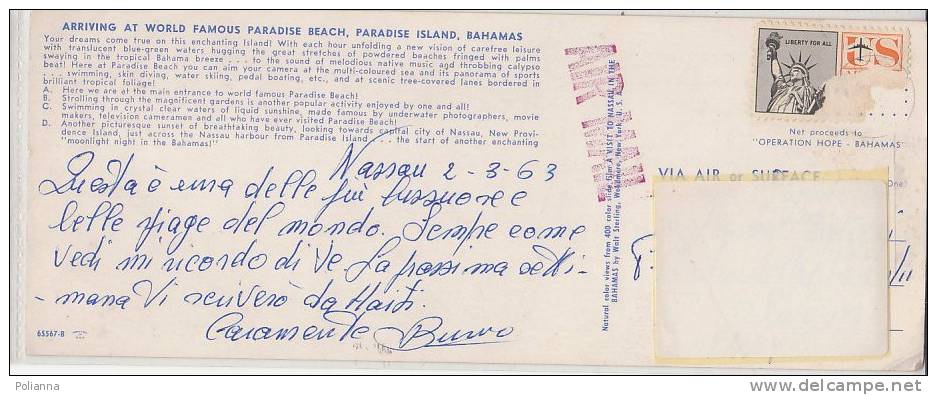 ARRIVING AT WORLD FAMOUS PARADISE BEACH, PARADISE ISLAND, BAHAMAS
Your dreams come true on this enchanting Island! With each hour unfolding a new vision of carefree leisure
with translucent blue-green waters hugging the great stretches of powdered beaches fringed with palms
swaying in the tropical Bahama breeze . . . to the sound of melodious native music and throbbing calypso
beat! Here at Paradise Beach you can aim your camera at the multi-coloured sea and its panorama of sports
. . . swimming, skin diving, water skiing, pedal boating, etc., and at scenic tree-covered lanes bordered in
brilliant tropical foliage!
A. Here we are at the main entrance to world famous Paradise Beach!
B. Strolling through the magnificent gardens is another popular activity enjoyed by one and all!
C. Swimming in crystal clear waters of liquid sunshine, made famous by underwater photographers, movie
makers, television cameramen and all who have ever visited Paradise Beach!
D. Another picturesque sunset of breathtaking beauty, looking towards capital city of Nassau, New Provi-
dence Island, just across the Nassau harbour from Paradise Island . . . the start of another enchanting
"moonlight night in the Bahamas!"
Nassau 2-3-63
Questa è una delle più lussuore e
belle spiage del mondo. Sempre come
vedi mi ricordo di Ve La prossima setti-
-mana Vi scriverò da Haiti.
Caramente Bruno
65567-B
Natural color views from 400 color slide film A VISIT TO NASSAU IN THE
BAHAMAS by Walt Sterling, Woodmere, New York, U. S. A.
LIBERTY FOR ALL
US
Net proceeds to
"OPERATION HOPE - BAHAMAS"
VIA AIR or SURFACE
One)
/11
Polianna
www.delcampe.net